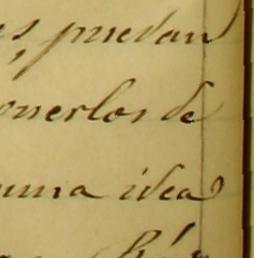 s, puedan
onerlos de
una idea